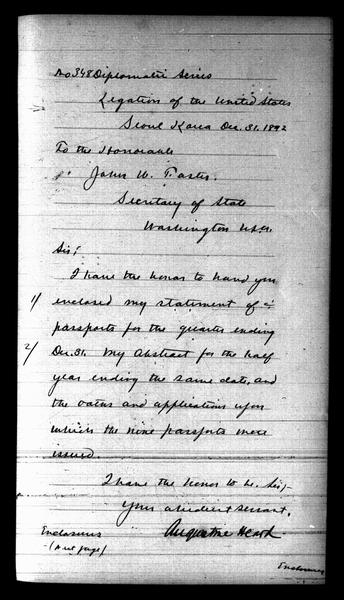 No 348 Diplomatic Series
Legation of the United States
Seoul Korea Dec. 31. 1892
To the Honorable
John W. Foster.
Secretary of State
Washington
Sir:
I have the honor to hand you
1/ enclosed my statement of
passports for the quarter ending
2/ Dec. 31. my abstract for the half
year ending the same date, and
the oaths and applications upon
which the nine passports were
issued.
I have the honor to be, Sir,
Your obedient servant,
Augustine Heard
Enclosures
(next page)
Enclosures